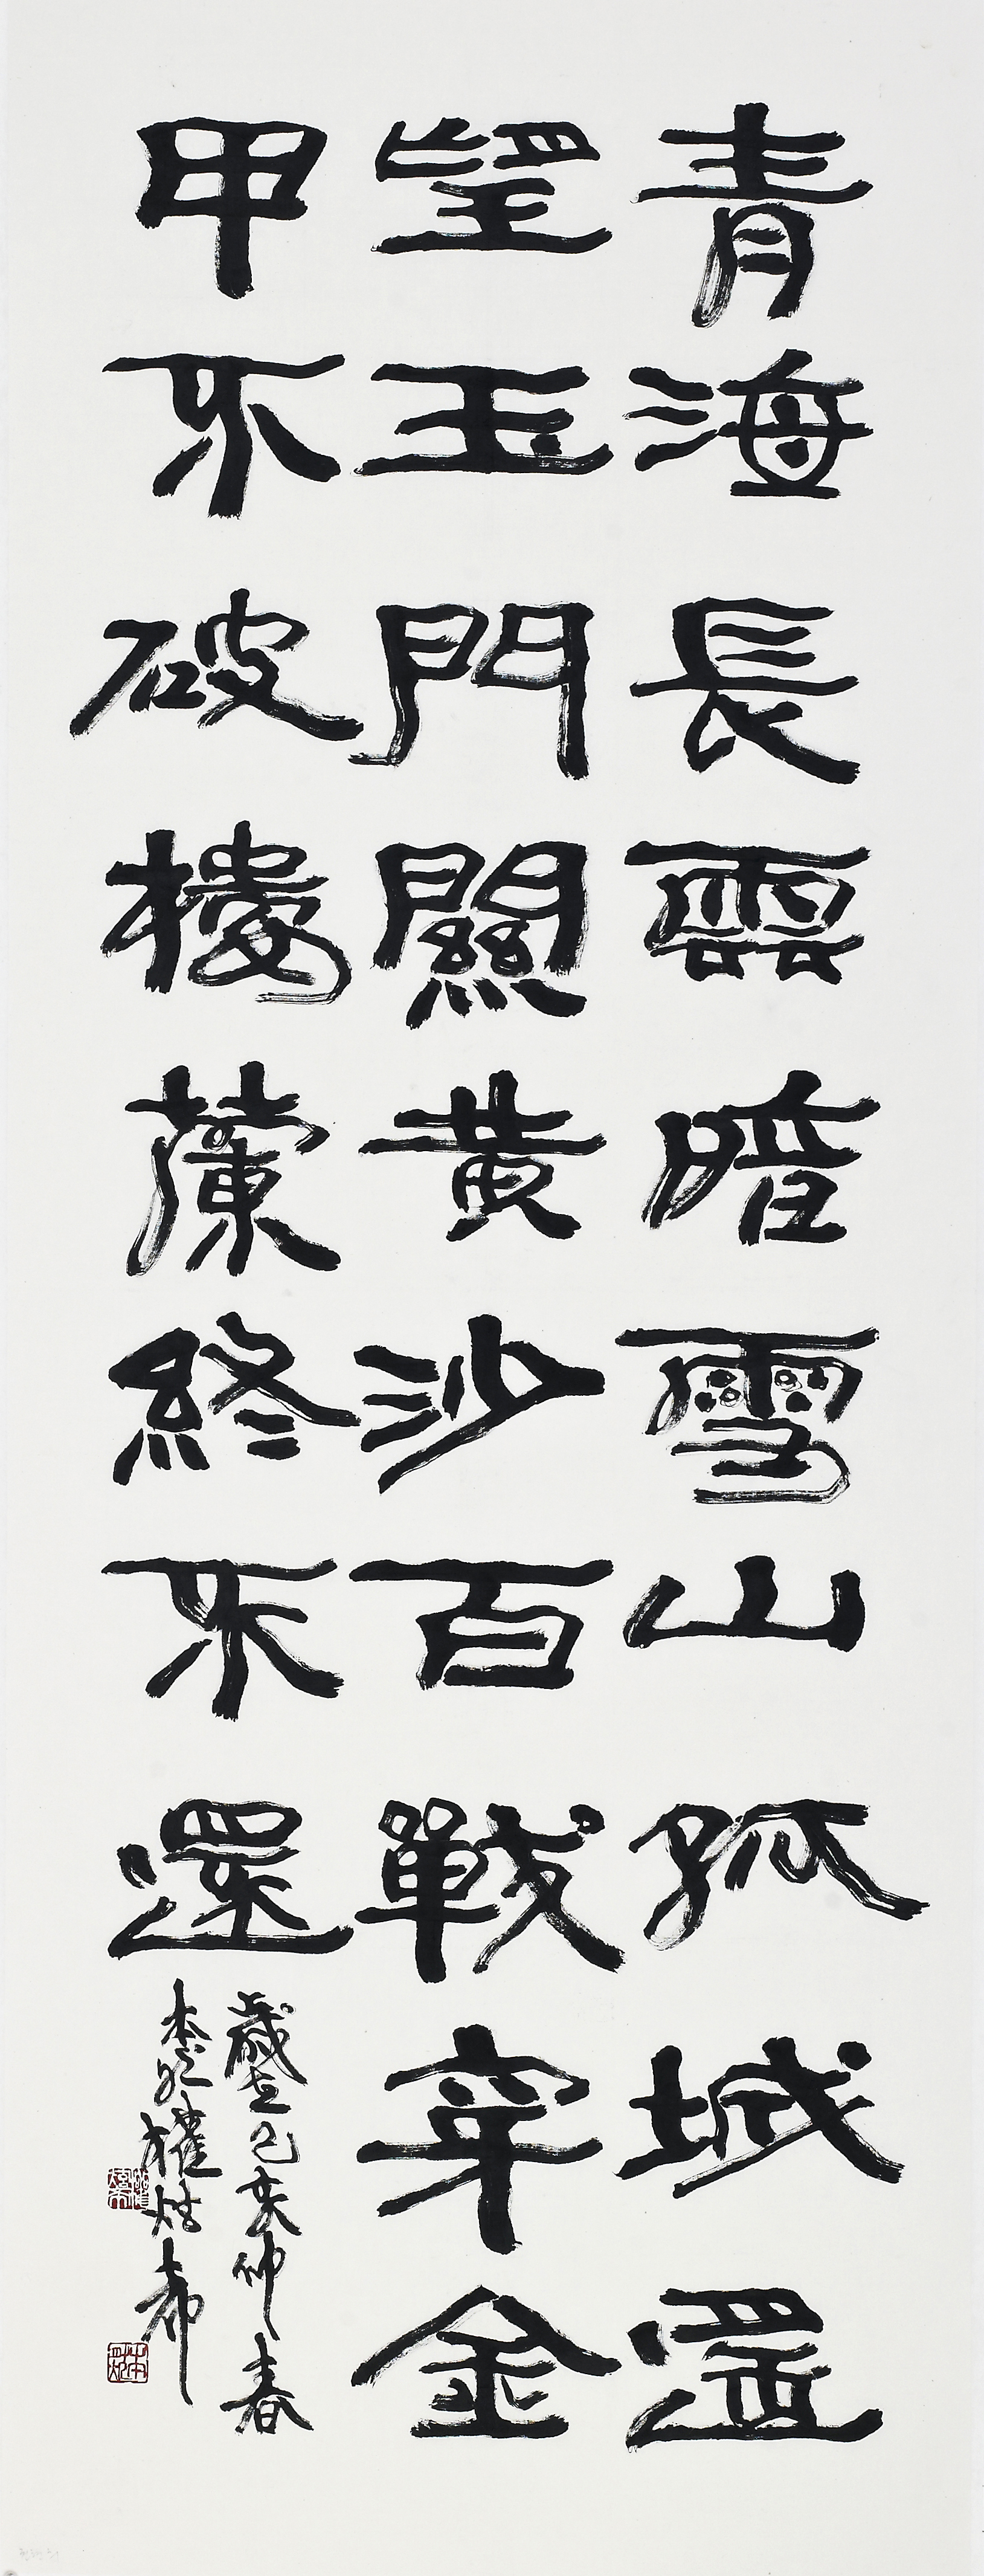 青海長雲暗雪山孤城遙
望玉門關黄沙百戰穿金
甲不破樓蘭終不還
歲在己亥仲春